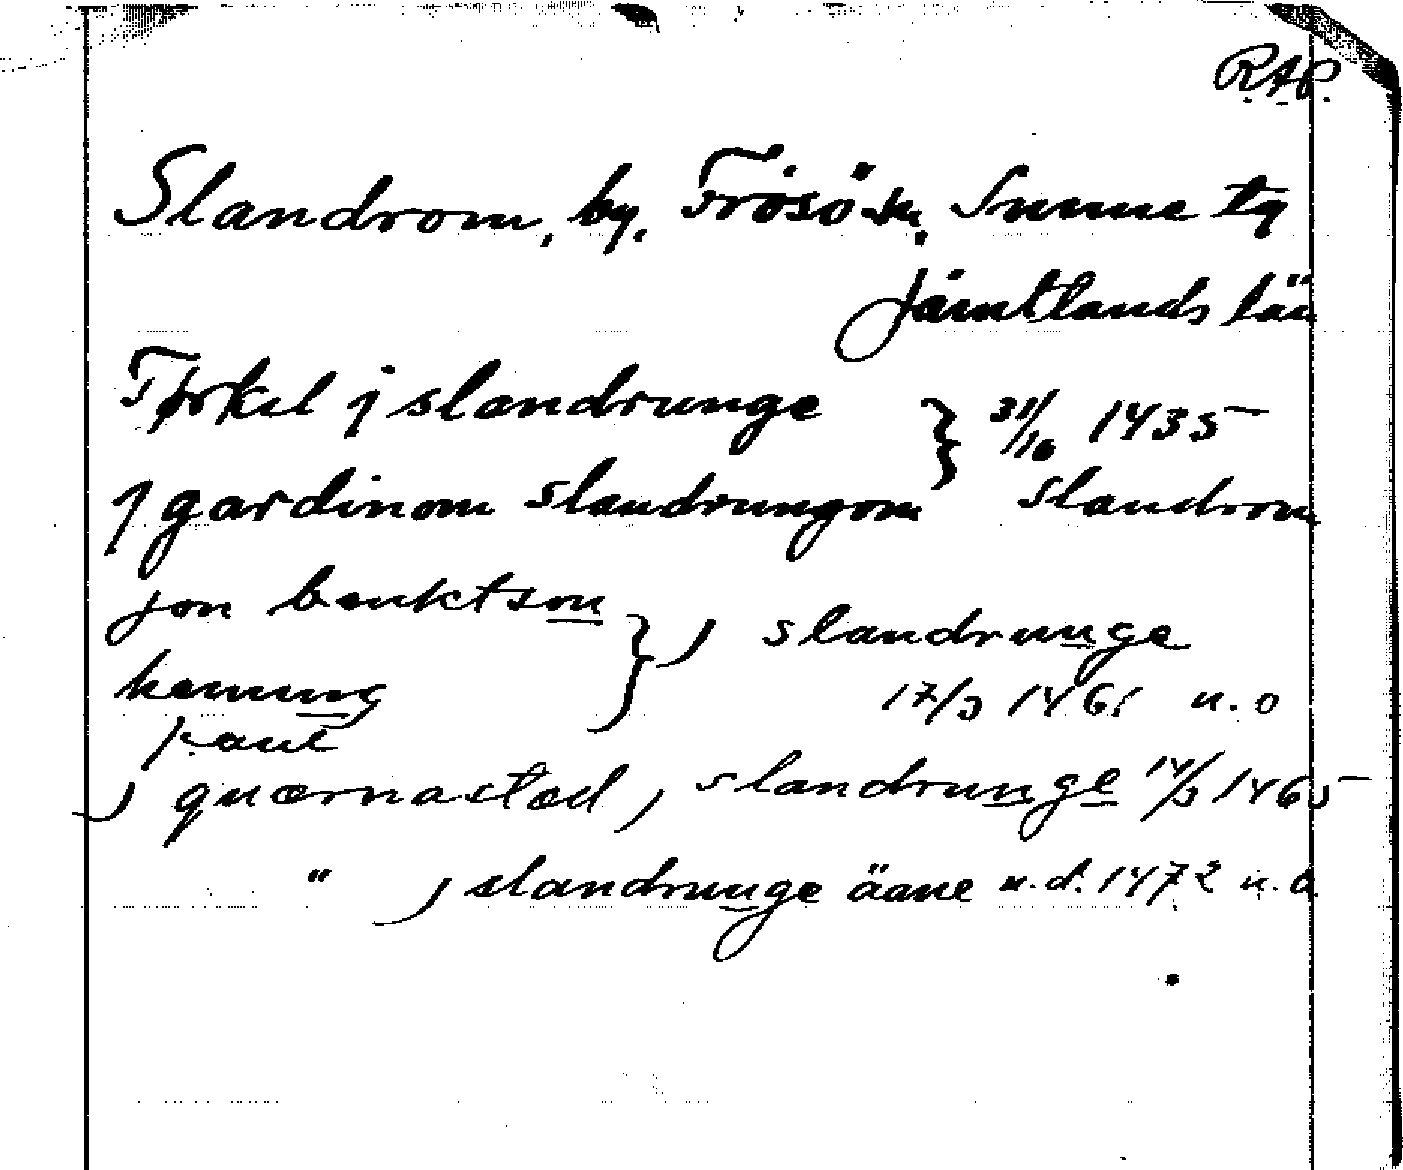 RAP.
Slandrom, by, Frösö sn, Sunne tg
Jämtlands län
Tørkel j slandrunge } 31/10 1435
j gardinom slandrungom Slandrom
jon benktson
} j slandrunge
hemung
17/3 1461 n. o
paul
j quærnastæd, slandrunge 14/3 1465
" j slandrunge äane u.d. 1472 n. o